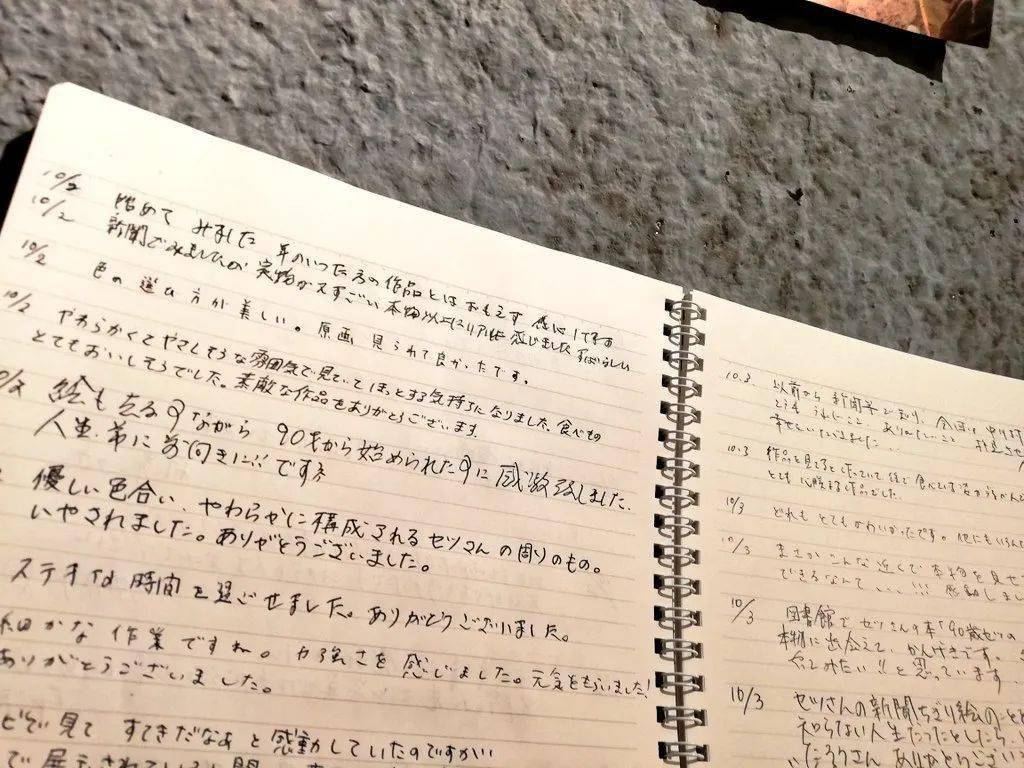 10/2
10/2 始めて みました 年のいった方の作品とはおもえず 感心!です
新聞でみましたが 実物がスすごい 本物以上にリアルに 感じました すばらしい
10/2 色の選び方が美しい。原画見られて良かったです。
10/2 やわらかくてやさしそうな雰囲気で見ていてほっとする気持ちになりました。食べもの
とてもおいしそうでした。素敵な作品をありがとうございます。
絵も去る事ながら 90才から始められた事に感激致しました。
人生、常に前向きに!!ですネ
優しい色合い、やわらかに構成されるセツさんの周りのもの。
いやされました。ありがとうございました。
ステキな時間を過ごせました。ありがとうございました。
細かな作業ですね。力強さを感じました。元気をもらいました!
ありがとうございました。
ビで見て すてきだなぁと感動していたのですが
で展示されていると聞
10.3 以前から新聞等で知り、今回
うれしこと ありがたいこと
幸せいただきました
10.3 作品を見てると作っていて後で食べている姿が
とても 作品でした。
10/3 どれも とてもかわいかったです。他にもいろんな
10/3 まさか こんな近くで本物を見せて
できるなんて … !!! 感動しまし
10/3 図書館で セツさんの本「90歳セツの
本物に出会えて、かんげきです。
てみたい!!と思っています
10/3 セツさんの新聞ちぎり絵のことを
知らない人生だったとしたら、
だろうさん ありがとうござい